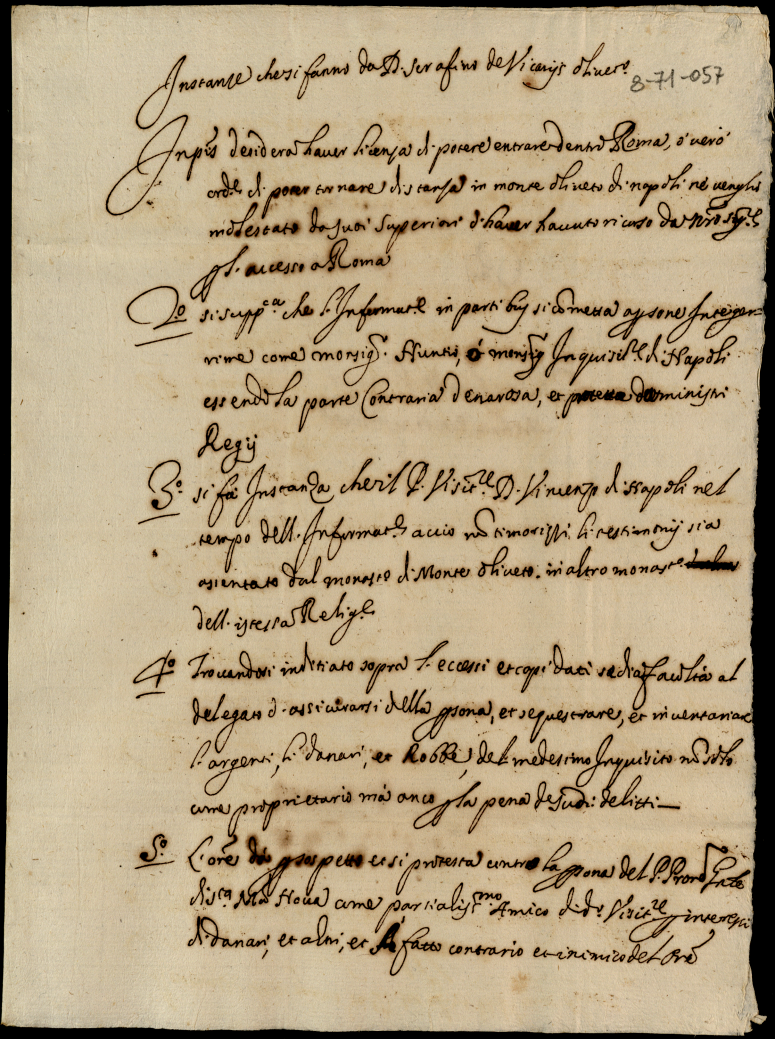 Instanze che si fanno da D. Serafino de Vicarijs olivet.º
8-71-057
In p.is desidera haver licenza di potere entrare dentro Roma, o' vero
ord.e di poter tornare di stanza in monte oliveto di napoli ne venghi
molestato da suoi superiori d'haver havuto ricorso da Nro Sig.re
p l'accesso a Roma
2.º si supp.ca che l'Informat.e in partibus si cometta a psone Integer-
rime come monsig.r Nuntio, ò monsig.r Inquisit.re di Napoli
essendo la parte Contraria denarosa, et da ministri
Regij
3.º si fà Instanza che il P. Visit.re D. Vincenzo di Napoli nel
tempo dell'Informat.e accio nõ timorisChi li testimonij sia
asentato dal monast.o di Monte oliveto in altro monast.o
dell'istessa Relig.e
4.º Trovandosi inditiato sopra l'eccessi et capi dati se dia facoltà al
delegato d'assicurarsi della psona, et sequestrare, et inventariare
l'argenti, li danari, et Robbe, del medesimo Inquisito nõ solo
come proprietario mà anco p la pena de suoi delitti
5.º L'ore dà p sospetto et si protesta contro la psona del P. Proc.
di S.ta M.a Nova come partialiss.mo Amico di d.o Visit.re p interessi
di danari, et altri, et fatto contrario et inimico del Ore